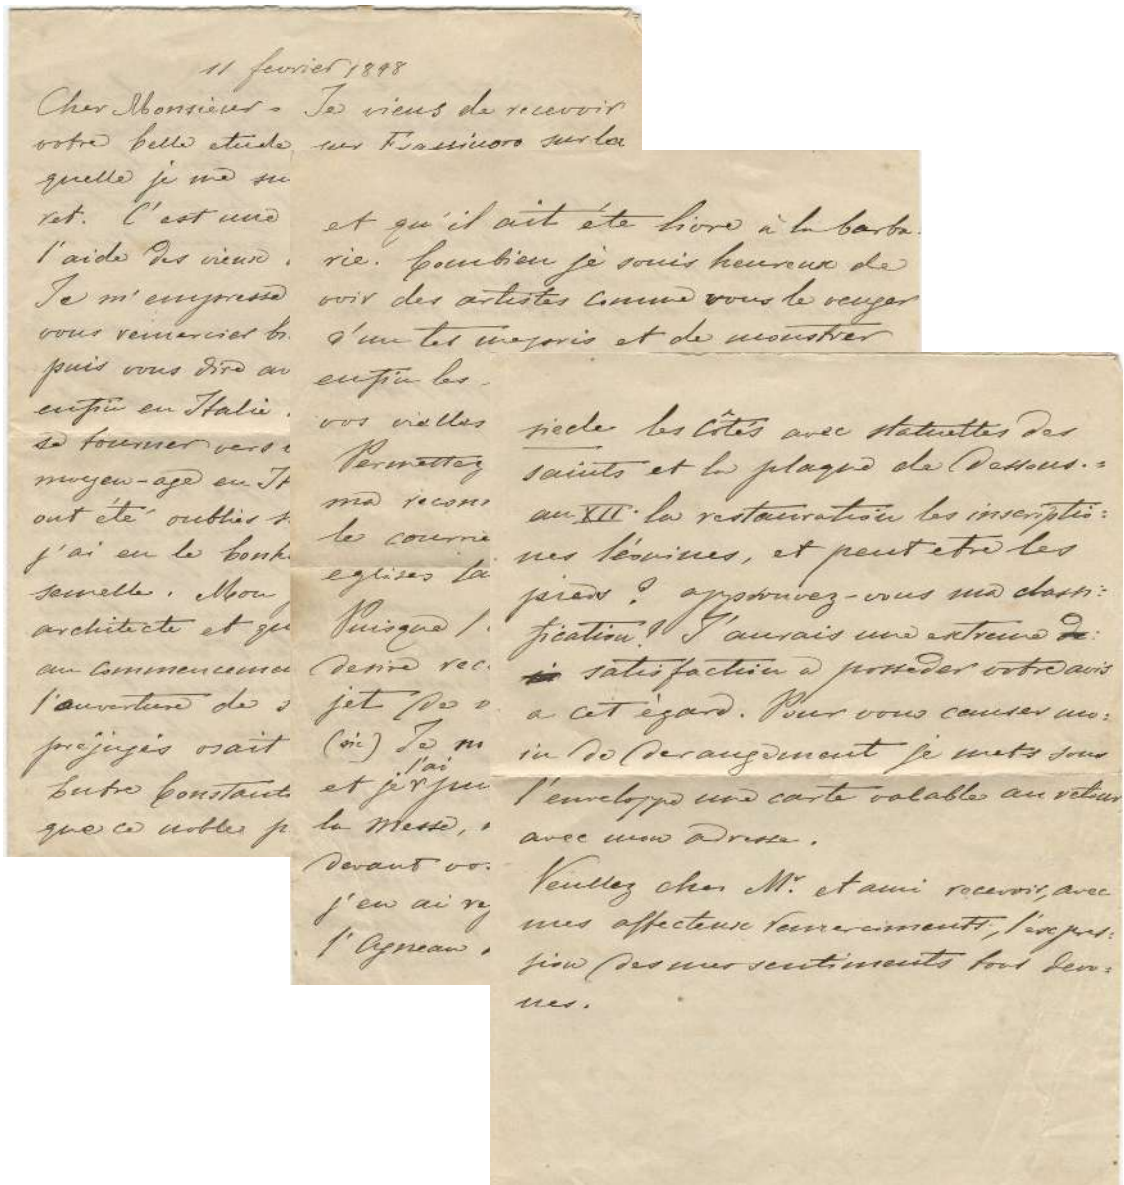 11 fevrier 1898
Cher Monsieur = Je viens de recevoir
votre belle etude sur Frassinoro sur la
quelle je me su
ret. C'est une
l'aide des vieux
Je m'empresse
vous remercier bi
puis vous dire au
enfin en Italie
se tourner vers
moyen-age en It
ont été oublies
j'ai eu le bonh
semelle. Mon
architecte et qu
au commenceme
l'ouverture de s
préjugés osait
Entre Constant
que ce noble p
et qu'il ait éte livre à la barba-
rie. Combien je souis heureux de
voir des artistes comme vous le venger
d'un tel mepris et de monstrer
enfin les
vos vielles
Permettez
ma reconn
le courrie
eglises
Puisque l'
desire rec
jet de v
(sic) Je m
et je l'ai
la Messe,
devant vo
j'en ai re
l'Agneau
siecle les côtés avec statuettes des
saints et la plaque de dessous. =
au XII. la restauration les inscriptio=
nes léonines, et peut etre les
pieds? approuvez-vous ma classi=
fication? J'aurais une extreme
satisfaction a posseder votre avis
a cet égard. Pour vous causer mo=
in de derangement je mets sous
l'enveloppe une carte valable au retour
avec mon adresse.
Veullez cher Mr. et ami recevoir, avec
mes affecteux remerciments, l'expres=
sion des mes sentiments tous devo=
ues.